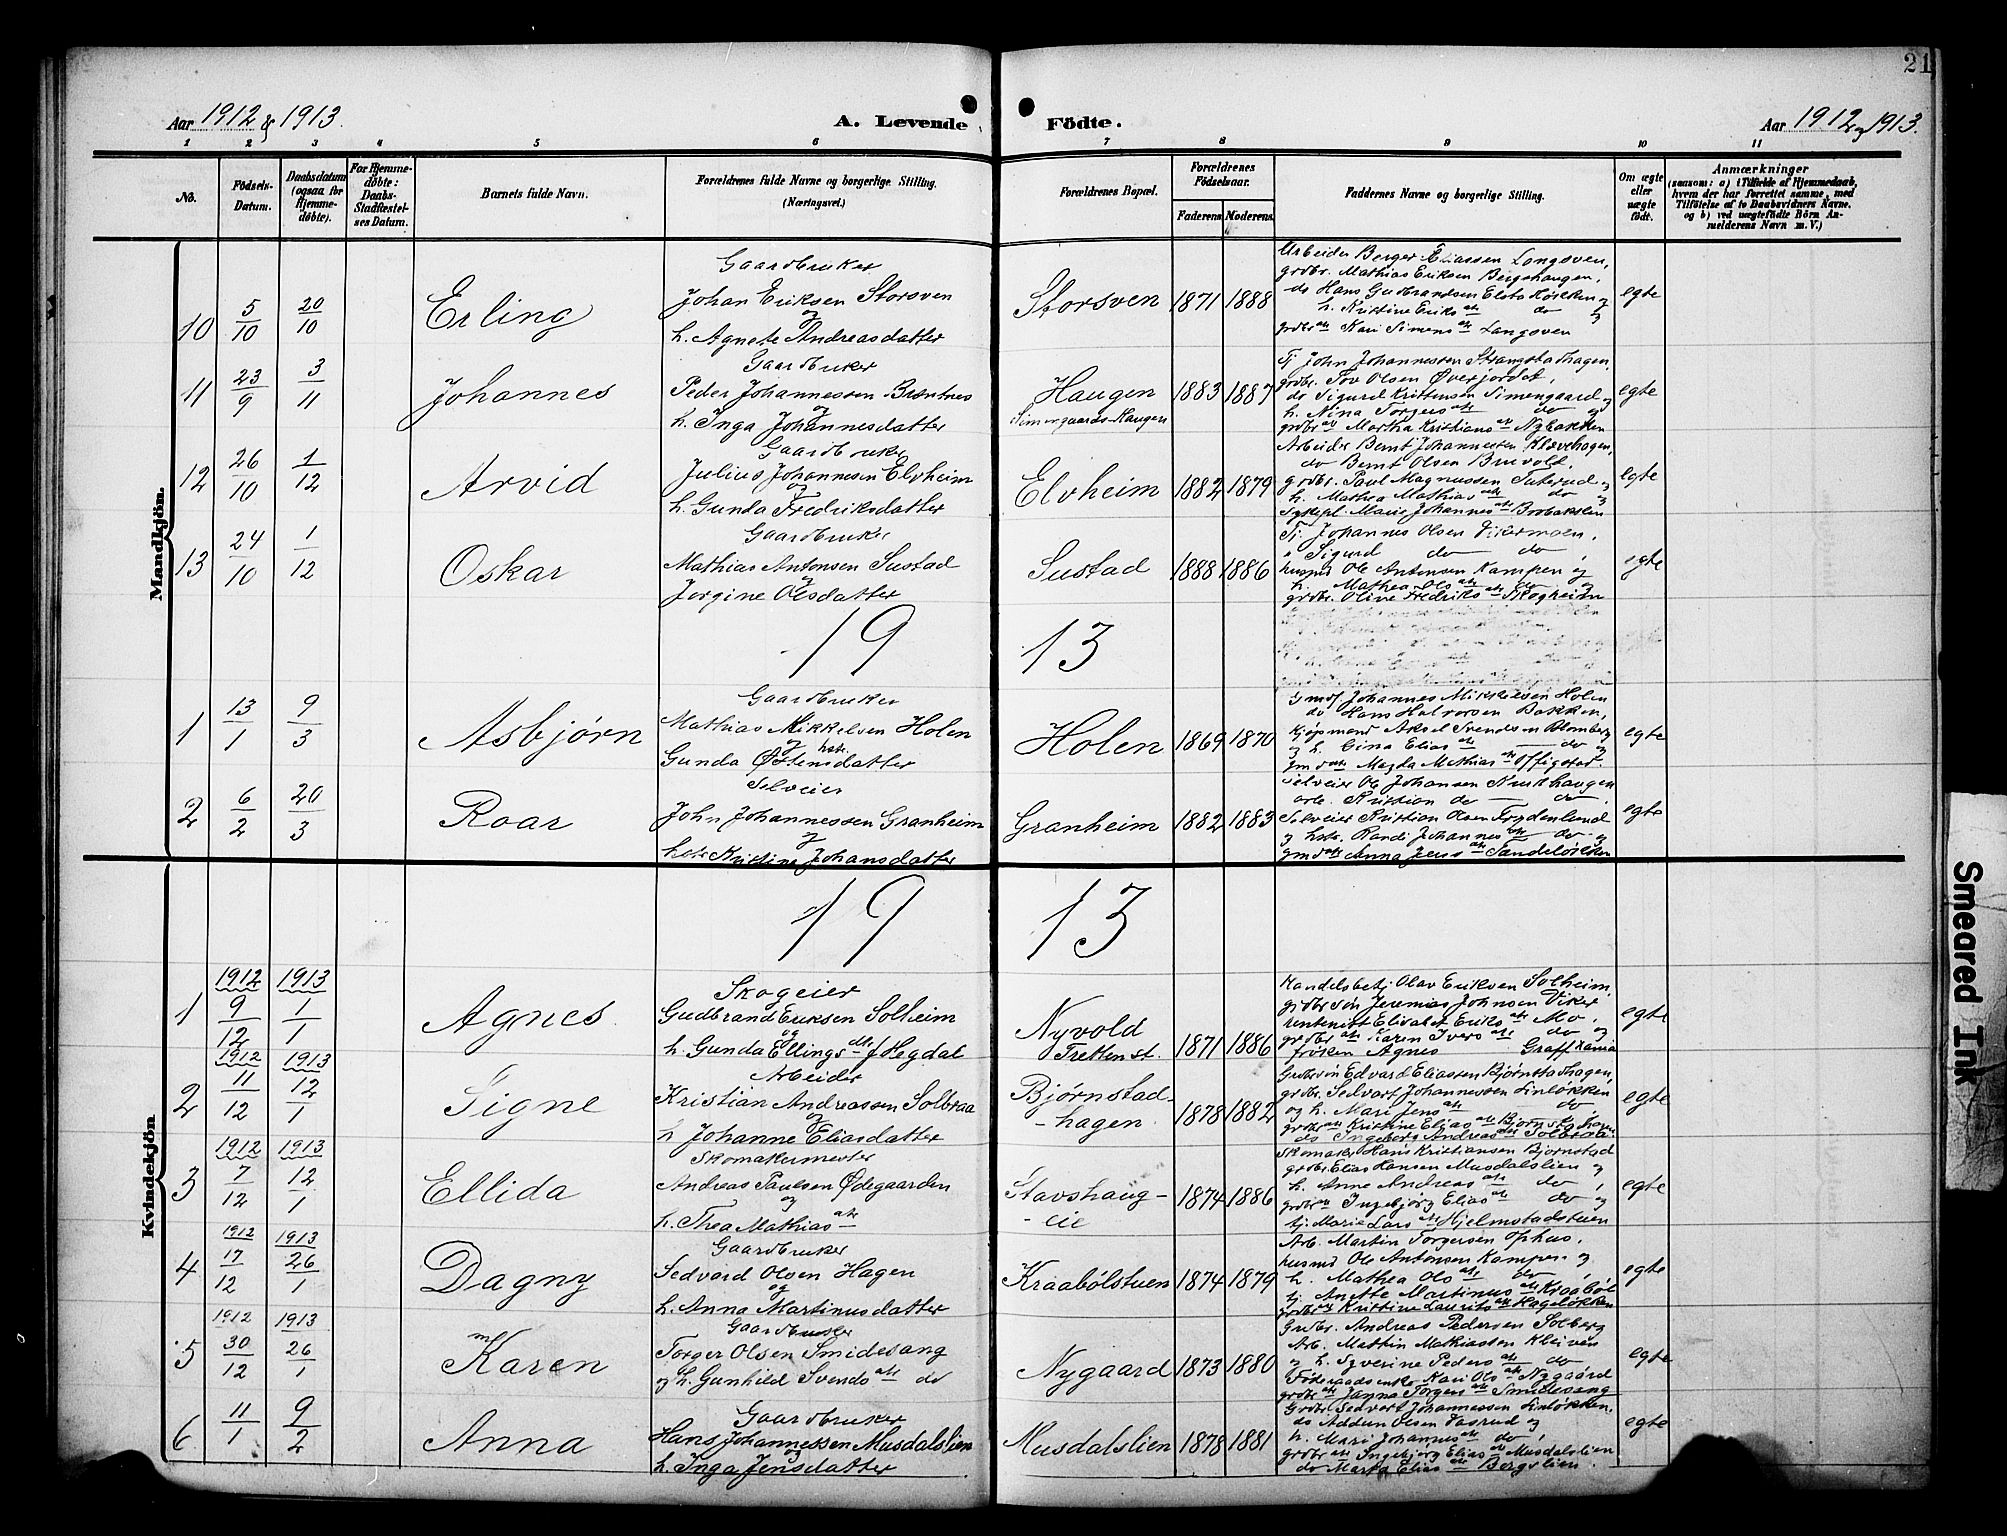 21
Aar 1912 & 1913.
A. Levende Födte.
Aar 1912 og 1913.
1 2 3 4 5 6 7 8 9 10 11
No.
Födsels-Datum.
Daabsdatum (ogsaa for Hjemmedøbte).
For Hjemmedøbte: Daabs-Stadfæstelses Datum.
Barnets fulde Navn.
Forældrenes fulde Navne og borgerlige Stilling. (Næringsvei.)
Forældrenes Bopæl.
Forældrenes Födselsaar.
Faderens Moderens
Faddernes Navne og borgerlige Stilling.
Om ægte eller uægte födt.
Anmærkninger
(saasom: a) i Tilfælde af Hjemmedaab, hvem der har forrettet samme, med Tilføielse af to Daabsvidners Navne. og b) ved uægtefödte Börn Anmelderens Navn m. V.)
Mandkjön.
10 5/10 20/10 Erling
Gaardbruker
Johan Eriksen Storsven
og
h. Agnete Andreasdatter
Storsven 1871 1888
Arbeider Berger Eliassen Langsven,
grdbr. Mathias Eriksen Bergehaugen,
do Hans Gudbrandsen Elstaløkken og
h. Kristine Eriks dtr do og
grdbr dtr Kari Simens dtr Langsven
egte
11 23/9 3/11 Johannes
Gaardbruker
Peder Johannessen Brentnes
og
h. Inga Johannesdatter
Haugen
Simengaards-Haugen
1883 1887
Tj John Johannessen Strangstadhagen,
grdbr. Tov Olsen Øverjordet,
do Sigurd Kristensen Simengaard og
h. Nina Torgers dtr do og
grdbr dtr Martha Kristians dtr Nybakken
egte
12 26/10 1/12 Arvid
Gaardbruker
Julius Johannesen Elvheim
og
h. Gunda Fredriksdatter
Elvheim 1882 1879
Arbeider Bernt Johannesen Klævehagen,
do Bernt Olsen Bruvold,
grdbr. Paul Magnussen Suterud og
h. Mathea Mathias dtr do og
Sykepl. Marie Johannes dtr
egte
13 24/10 1/12 Oskar
Gaardbruker
Mathias Antonsen Sustad
og
Jorgine Olsdatter
Sustad 1888 1886
Tj. Johannes Olsen Vikermoen,
" Sigurd do do
husmd Ole Antonsen Kampen og
h. Mathea Ols dtr do og
grdbr. Olive Fredriks dtr Skogheim
egte
19 13
1 13/1 9/3 Asbjørn
Gaardbruker
Mathias Mikkelsen Holen
og hstr.
Gunda Østensdatter
Holen 1869 1870
Gmdf. Johannes Mikkelsen Holen
do Hans Halvorsen Bakken,
Kjøpmand Aksel Svendsen Blomberg
og h. Gina Elias dtr do og
gmd dtr Magda Mathias dtr Offigstad.
egte
2 6/2 20/3 Roar
Selveier
John Johannessen Granheim
og
hstr Kristine Johansdatter
Granheim 1882 1883
Selveier Ole Johansen
arb. Kristian do do,
Selveier Kristian Olsen Frydenlund
og hstr. Randi Johannes dtr do og
gmd dtr Anna Jens dtr Sandeløkken
egte
Kvindekjön
19 13
1 1912 9/12 1913 1/1 Agnes
Skogeier
Gudbrand Eriksen Solheim
og
h. Gunda Ellings dtr f Hegdal
Nyvold
Tretten st.
1871 1886
Handelsbetj Olav Eriksen Solheim,
grdbr søn Jeremias Johnsen Viker,
rentenist Elisabet Eriks dtr Mo,
grdbr dtr Karen Ivers dtr do og
frøken Agnes Graff Kania
egte
2 1912 11/12 1913 12/1 Signe
Arbeider
Kristian Andreassen Solbraa
og
h Johanne Eliasdatter
Bjørnstad-
-hagen
1878 1882
Grdbrsøn Edvard Eliassen Bjørnstadhagen,
grdbr. Sedvart Johannessen Linløkken
og h. Mari Jens dtr do,
grdbr dtr Kristine Elias dtr Bjørnstadhagen
do Ingeborg Andreas dtr Solbraa
egte
3 1912 7/12 1913 12/1 Ellida
Skomakermester
Andreas Paulsen Ødegaarden
og
h. Thea Mathias dtr
Stavshaug-
-eie
1874 1886
Skomaker Hans Kristiansen Bjørnstad
grdbr. Elias Hansen Musdalslien og
h. Anne Andreas dtr do,
grdbr dtr Ingebjørg Elias dtr do og
tj. Marie Lars dtr Hjelmstadstuen
egte
4 1912 17/12 1913 26/1 Dagny
Gaardbruker
Sedvard Olsen Hagen
og
h. Anna Martinusdatter
Kraabølstuen 1874 1879
Arb. Martin Torgersen Ophus,
husmd Ole Antonsen Kampen og
h. Mathea Ols dtr do,
tj. Anette Martinus dtr Kraabøl
grdbr dtr Kristine Laurits dtr Hageløkken
egte
5 1912 30/12 1913 26/1 Karen
Gaardbruker
Torger Olsen Smidesang
og h. Gunhild Svends dtr do
Nygaard 1873 1880
Grdbr. Andreas Pedersen Solberg
Arb. Mathin Mathiassen Kleiven
og h. Syverine Peders dtr do
Føderaadsenke Kari Ols dtr Nygaard
grdbr dtr Janna Torgers dtr Smidesang
egte
6 11/1 9/2 Anna
Gaardbruker
Hans Johannessen Musdalslien
og
h. Inga Jensdatter
Musdalslien 1878 1881
Grdbr. Sedvart Johannessen Linløkken,
do Addun Olsen Taarud og
h. Mari Johannes dtr do,
grdbr dtr Ingebjørg Elias dtr Musdalslien
do Marta Elias dtr Bergslien.
egte
Smeared Ink